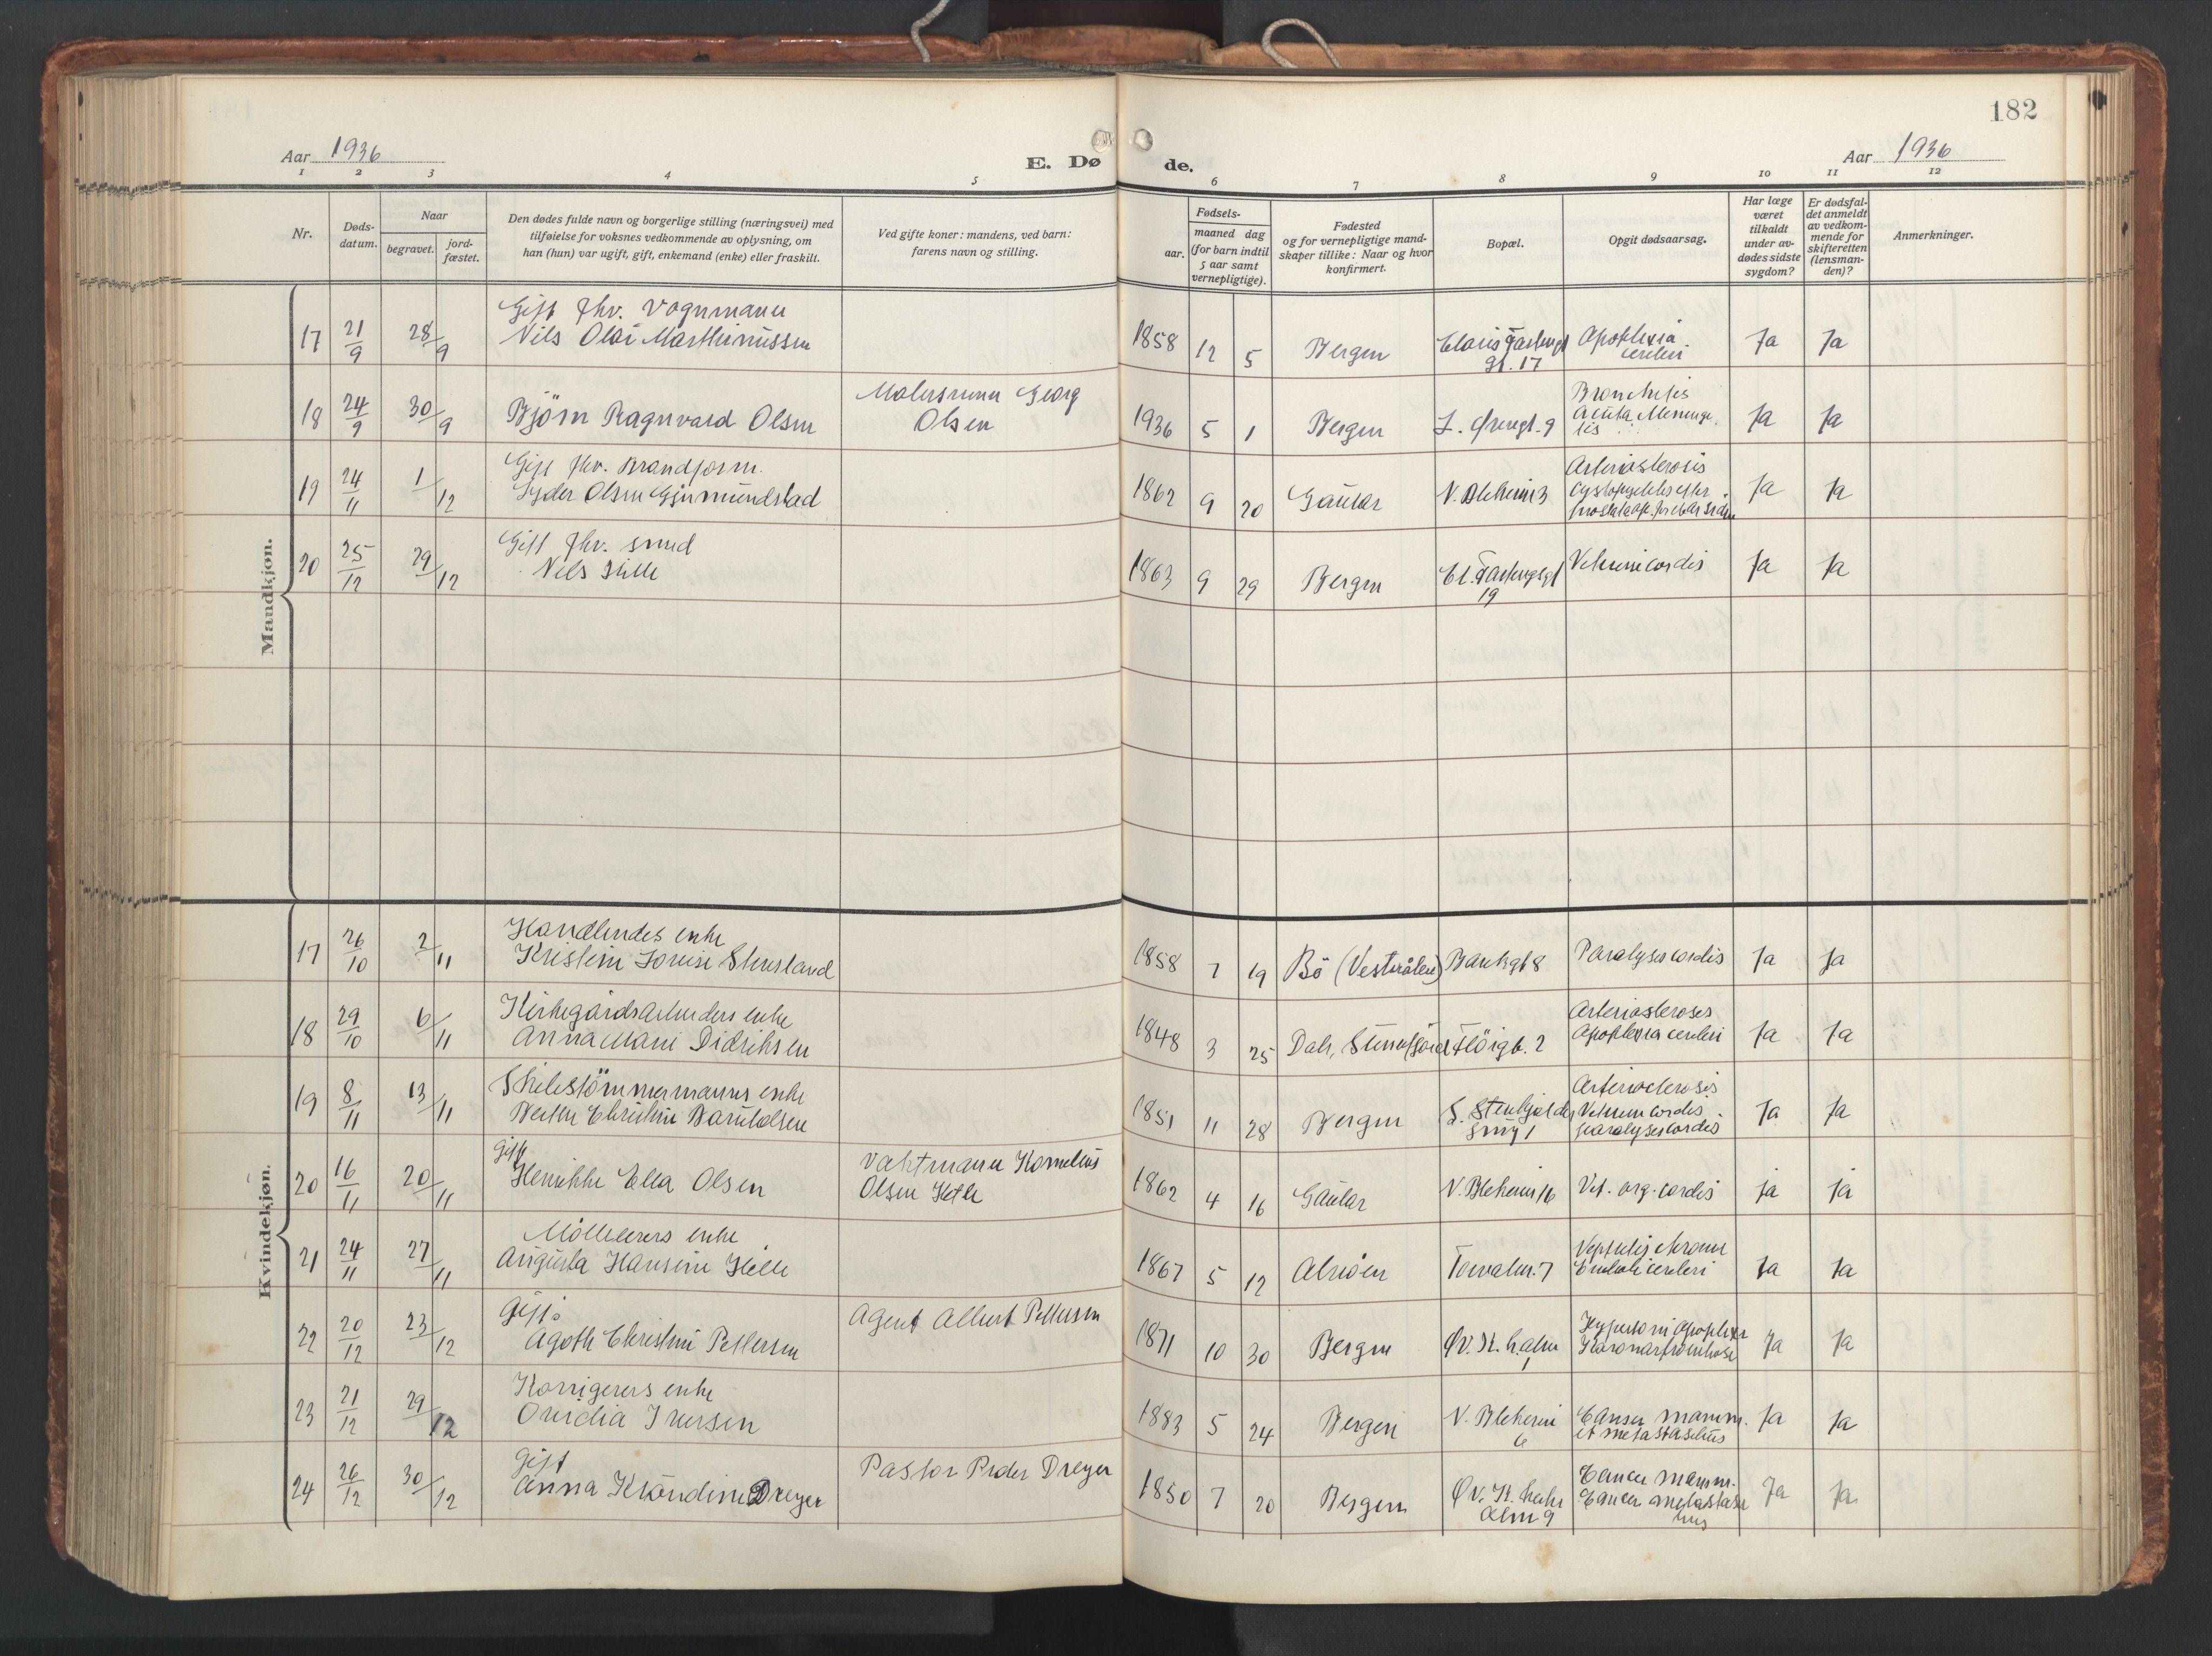 182
Aar 1936
E. Dø de.
Aar 1936
1 2 3 4 5 6 7 8 9 10 11 12
Nr.
Døds-
datum.
Naar
begravet.
jord-
fæstet.
Den dødes fulde navn og borgerlige stilling (næringsvei) med
tilføielse for voksnes vedkommende av oplysning, om
han (hun) var ugift, gift, enkemand (enke) eller fraskilt.
Ved gifte koner: mandens, ved barn:
farens navn og stilling.
Fødsels-
aar.
maaned dag
(for barn indtil
5 aar samt
vernepligtige).
Fødested
og for vernepligtige mand-
skaper tillike: Naar og hvor
konfirmert.
Bopæl.
Opgit dødsaarsag.
Har læge
været
tilkaldt
under av-
dødes sidste
sygdom?
Er dødsfal-
det anmeldt
av vedkom-
mende for
skifteretten
(lensman-
den)?
Anmerkninger.
Mandkjøn.
Gift fhv. Vognmann
17 21/9 28/9 Nils Olai Marthinussen 1858 12 5 Bergen gt. 17 Apoplexia cerebri Ja Ja
Malersvenn Georg
18 24/9 30/9 Björn Ragnvard Olsen Olsen 1936 5 1 Bergen Bronchitis Acuta. Meninge
tis Ja Ja
Gift fhv. Brandform.
19 24/11 1/12 Olsen Gjermundstad 1862 9 20 Gaular N. Blekevei 3 Arteriosclerosis Ja Ja
Gift fhv. smed
20 25/12 29/12 Nils Hille 1863 9 29 Bergen 19 Vitium cordis Ja Ja
Kvindekjøn.
Handlendes enke
17 26/10 2/11 Kristine Lovise Stensland 1858 7 19 Bö (Vesterålen) Bankgt 8 Paralysis cordis Ja Ja
Kirkegårdsarbeiders enke
18 29/10 6/11 Anna Marie Didriksen 1848 3 25 Dale, Flöigt. 2 Arteriosclerosis
Apoplexia cerebri Ja Ja
Skibstömmermanns enke
19 8/11 13/11 Berthe Christine 1851 11 28 Bergen S. Stenkjelder
smug 1 Arteriosclerosis
Vitium cordis
paralysis cordis Ja Ja
Gift
20 16/11 20/11 Henrikke Elea Olsen Vaktmann Kornelius
Olsen 1862 4 16 Gaular N. Blekevei 16 Vit. org. cordis Ja Ja
Möllers enke
21 24/11 27/11 Augusta Hansine Hille 1867 5 12 Alvöen 7 Nephritis chron
Emboli cerebri Ja Ja
Gift
22 20/12 23/12 Agoth Christine Pettersen Agent Albert Pettersen 1871 10 30 Bergen 1 Hypertoni apoplexi
Koronartrombose Ja Ja
Korrigerers enke
23 21/12 29/12 Ovidia Iversen 1883 5 24 Bergen N. Blekevei
6 Cancer mamm.
et metastasibus Ja Ja
Gift
24 26/12 30/12 Anna Dreyer Pastor Peder Dreyer 1850 7 20 Bergen Øv. Kr. bekk
alm 9 Cancer mamm.
Cancer metastasi
bus Ja Ja